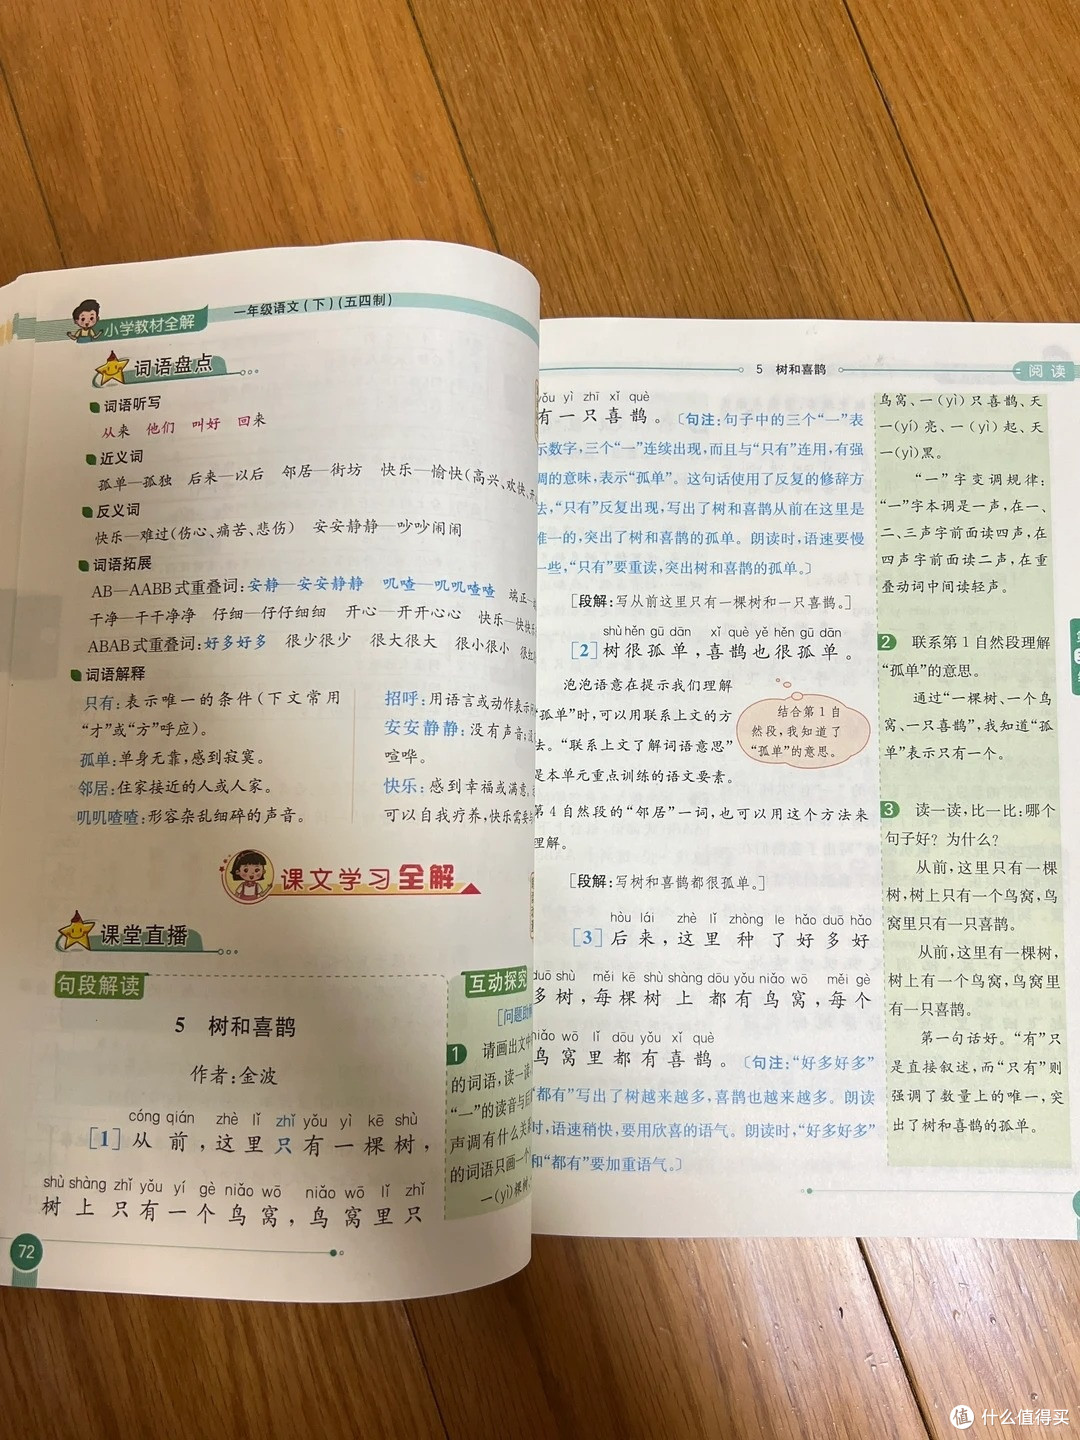 小学教材全解
一年级语文(下)(五四制)
词语盘点
词语听写
从来 他们 叫好 回来
近义词
孤单—孤独 后来—以后 邻居—街坊 快乐—愉快(高兴、欢快、
反义词
快乐—难过(伤心、痛苦、悲伤) 安安静静—吵吵闹闹
词语拓展
AB—AABB式重叠词:安静—安安静静 叽喳—叽叽喳喳 端正—
干净—干干净净 仔细—仔仔细细 开心—开开心心 快乐—快快
ABAB式重叠词:好多好多 很少很少 很大很大 很小很小
词语解释
只有:表示唯一的条件(下文常用
“才”或“方”呼应)。
孤单:单身无靠,感到寂寞。
邻居:住家接近的人或人家。
叽叽喳喳:形容杂乱细碎的声音。
招呼:用语言或动作表示
安安静静:没有声音;
喧哗。
快乐:感到幸福或满意;
可以自我疗养,快乐需要
课文学习全解
课堂直播
句段解读
5 树和喜鹊
作者:金波
cóng qián zhè lǐ zhǐ yǒu yì kē shù
[1]从前,这里只有一棵树,
shù shàng zhǐ yǒu yí gè niǎo wō niǎo wō lǐ zhǐ
树上只有一个鸟窝,鸟窝里只
互动探究
[问题助
1 请画出文中
的词语,读一读
“一”的读音与后
声调有什么关
的词语只画一个
一(yì)棵树、
72
5 树和喜鹊
阅读
yǒu yì zhī xǐ què
有一只喜鹊。〔句注:句子中的三个“一”表
示数字,三个“一”连续出现,而且与“只有”连用,有强
调的意味,表示“孤单”。这句话使用了反复的修辞方
法,“只有”反复出现,写出了树和喜鹊从前在这里是
唯一的,突出了树和喜鹊的孤单。朗读时,语速要慢
一些,“只有”要重读,突出树和喜鹊的孤单。〕
[段解:写从前这里只有一棵树和一只喜鹊。]
shù hěn gū dān xǐ què yě hěn gū dān
[2]树很孤单,喜鹊也很孤单。
泡泡语意在提示我们理解
“孤单”时,可以用联系上文的方
法。“联系上文了解词语意思”
是本单元重点训练的语文要素。
第4自然段的“邻居”一词,也可以用这个方法来
理解。
结合第1自
然段,我知道了
“孤单”的意思。
[段解:写树和喜鹊都很孤单。]
hòu lái zhè lǐ zhòng le hǎo duō hǎo
[3]后来,这里种了好多好
duō shù měi kē shù shàng dōu yǒu niǎo wō měi gè
多树,每棵树上都有鸟窝,每个
niǎo wō lǐ dōu yǒu xǐ què
鸟窝里都有喜鹊。〔句注:“好多好多”
“都有”写出了树越来越多,喜鹊也越来越多。朗读
时,语速稍快,要用欣喜的语气。朗读时,“好多好多”
和“都有”要加重语气。〕
鸟窝、一(yì)只喜鹊、天
一(yí)亮、一(yì)起、天
一(yì)黑。
“一”字变调规律:
“一”字本调是一声,在一、
二、三声字前面读四声,在
四声字前面读二声,在重
叠动词中间读轻声。
2 联系第1自然段理解
“孤单”的意思。
通过“一棵树、一个鸟
窝、一只喜鹊”,我知道“孤
单”表示只有一个。
3 读一读,比一比:哪个
句子好?为什么?
从前,这里只有一棵
树,树上只有一个鸟窝,鸟
窝里只有一只喜鹊。
从前,这里有一棵树,
树上有一个鸟窝,鸟窝里
有一只喜鹊。
第一句话好。“有”只
是直接叙述,而“只有”则
强调了数量上的唯一,突
出了树和喜鹊的孤单。
值 什么值得买